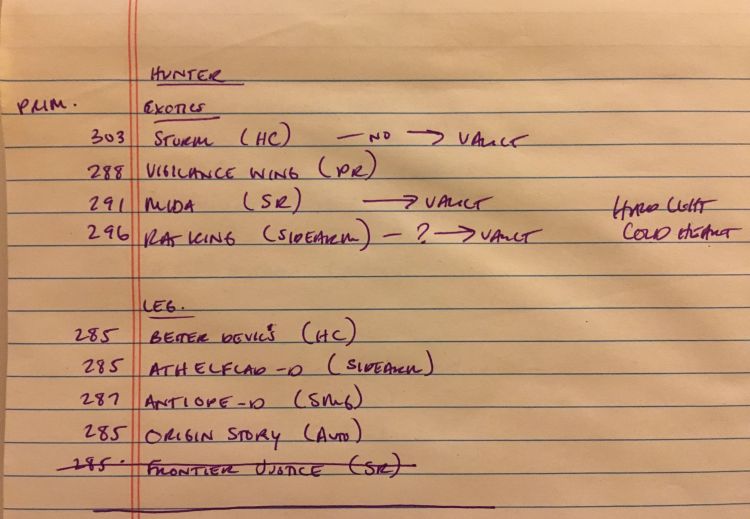 HUNTER
PRIM. EXOTICS
303 STURM (HC) — NO → VAULT
288 VIGILANCE WING (PR)
291 MIDA (SR) → VAULT HARD LIGHT
296 RAT KING (SIDEARM) — ? → VAULT COLD HEART
LEG.
285 BETTER DEVILS (HC)
285 ATHELFLAD-D (SIDEARM)
287 ANTIOPE-D (SMG)
285 ORIGIN STORY (AUTO)
285. FRONTIER JUSTICE (SR)